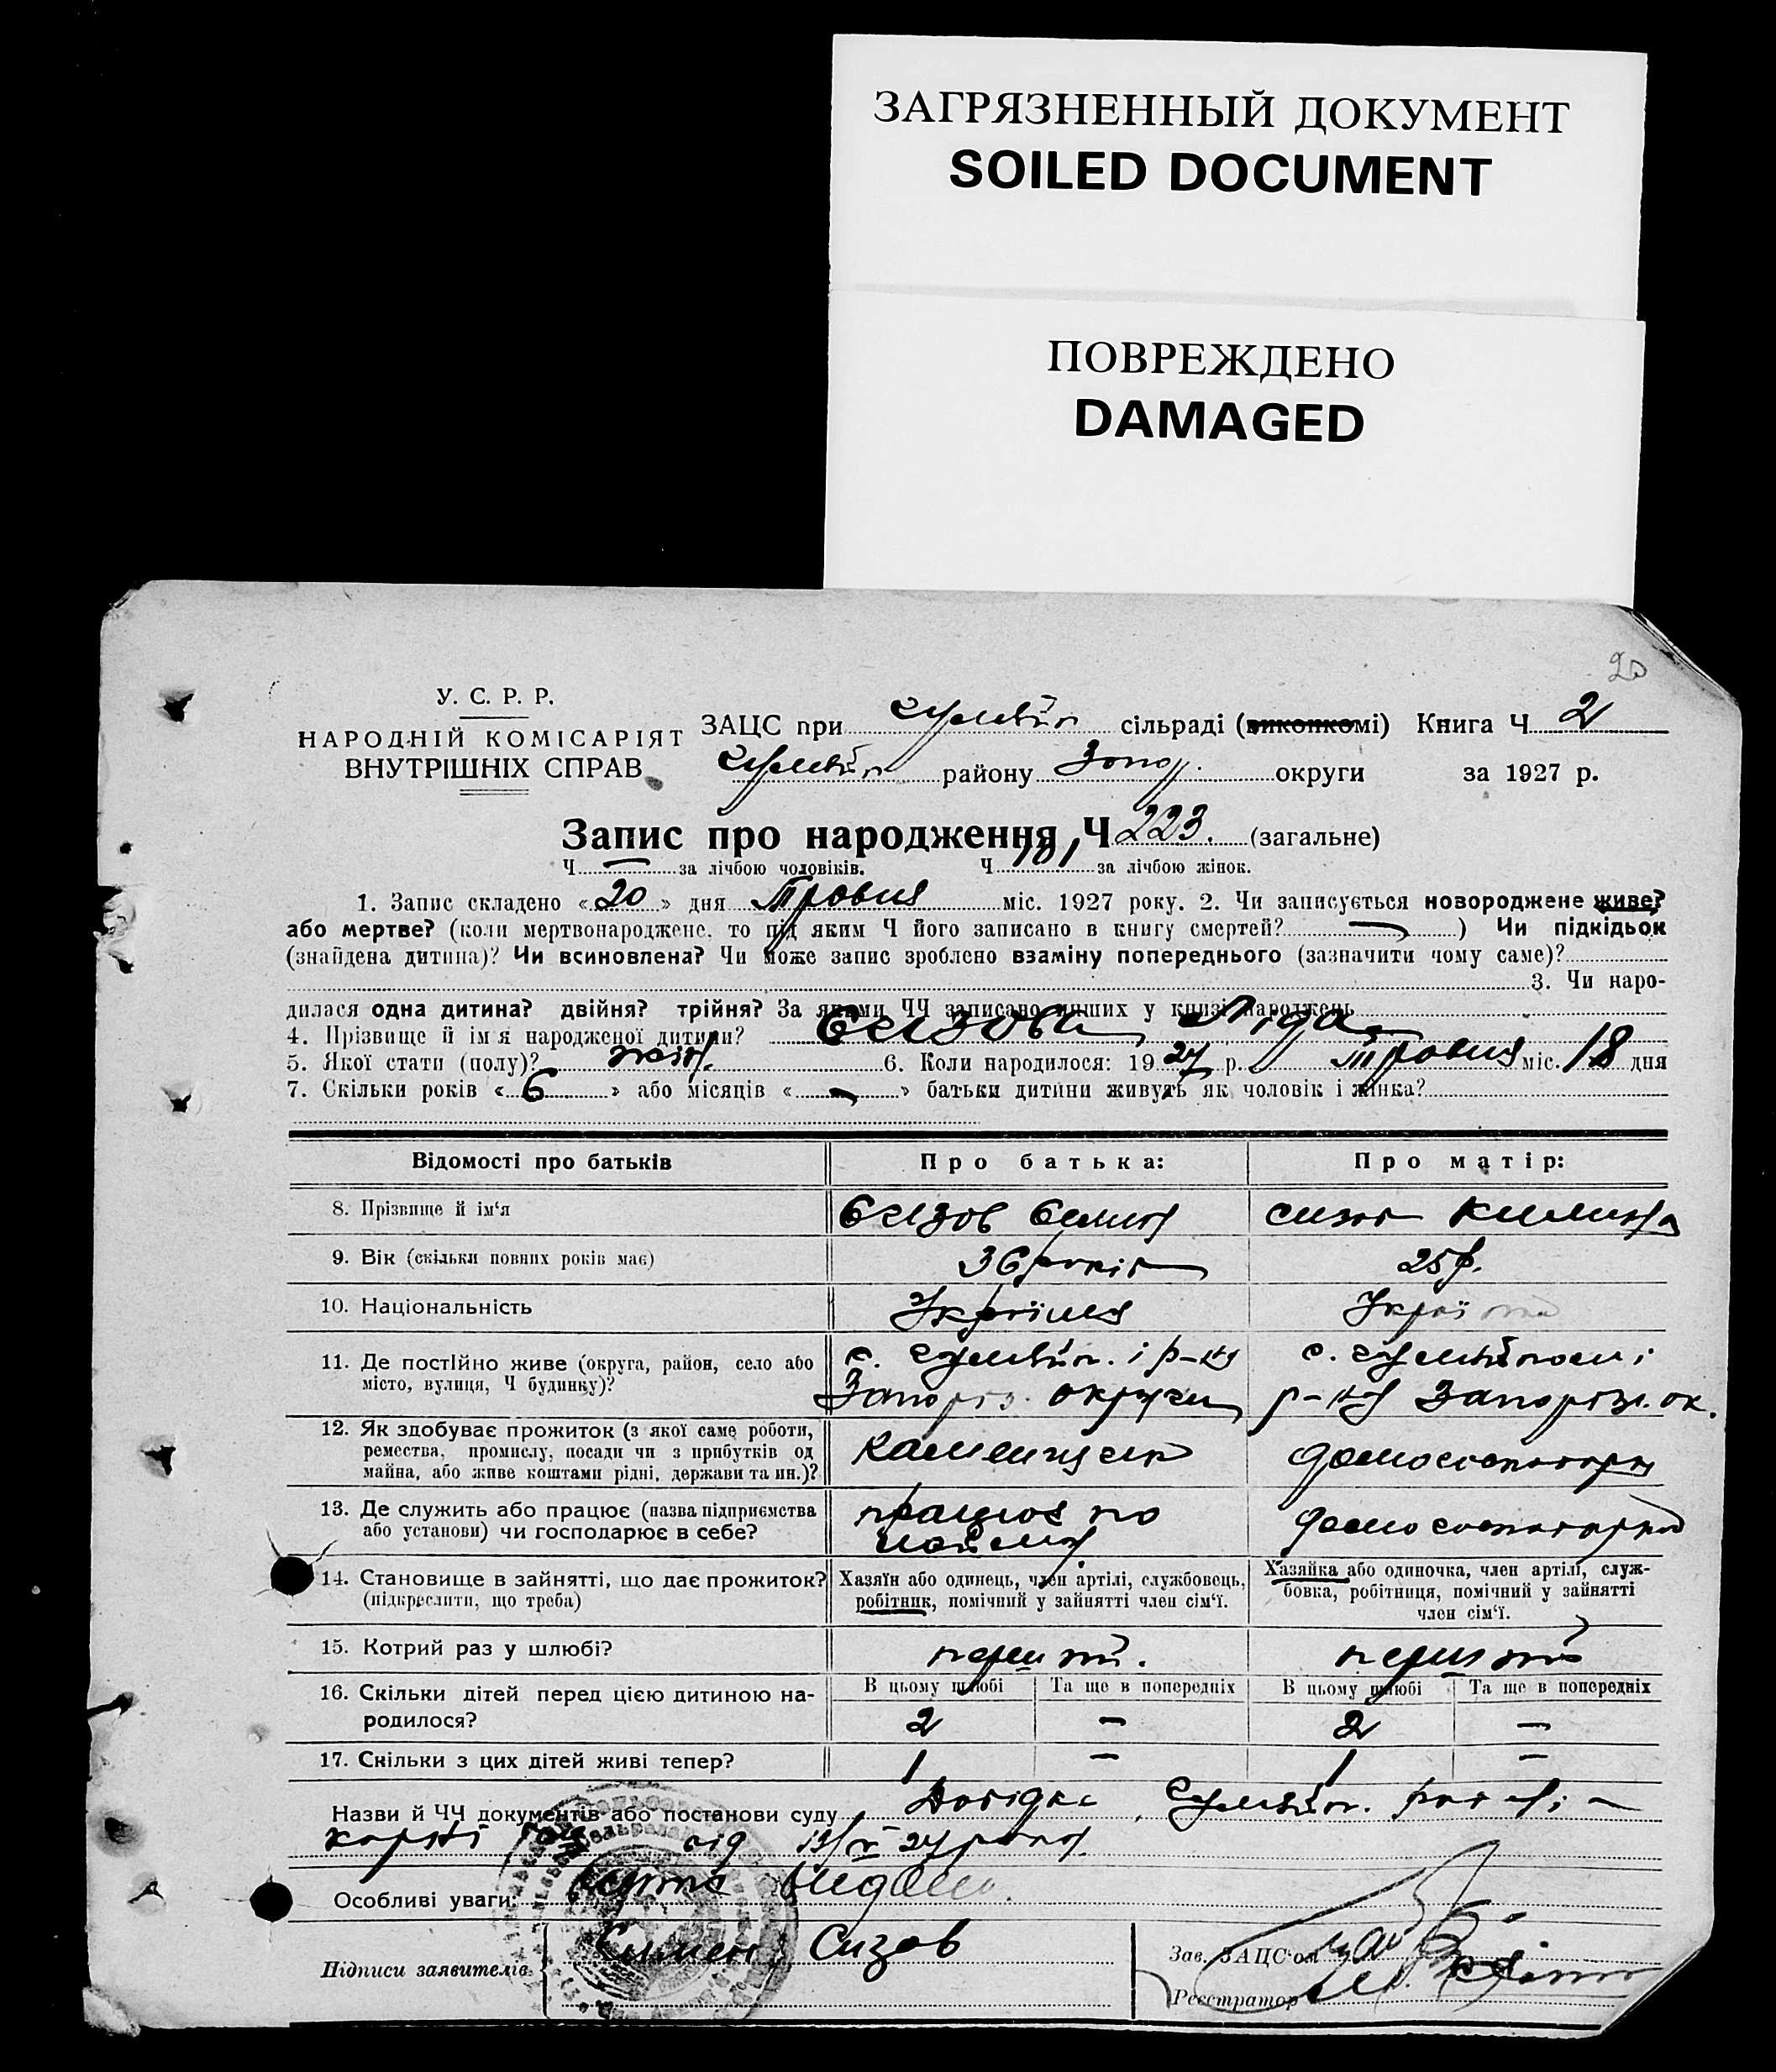 ЗАГРЯЗНЕННЫЙ ДОКУМЕНТ
SOILED DOCUMENT
ПОВРЕЖДЕНО
DAMAGED
20
У. С. Р. Р.
НАРОДНІЙ КОМІСАРІЯТ
ВНУТРІШНІХ СПРАВ
ЗАЦС при сільраді (виконкомі) Книга Ч 2
району Запор. округи за 1927 р.
Запис про народження Ч 223. (загальне)
Ч — за лічбою чоловіків. Ч 101 за лічбою жінок.
1. Запис складено «20» дня Травня міс. 1927 року. 2. Чи записується новороджене живе?
або мертве? (коли мертвонароджене, то під яким Ч його записано в книгу смертей? — ) Чи підкідьок
(знайдена дитина)? Чи всиновлена? Чи може запис зроблено взаміну попереднього (зазначити чому саме)?
3. Чи наро-
дилася одна дитина? двійня? трійня? За якими ЧЧ записано инших у книзі народжень
4. Прізвище й ім'я народженої дитини? Сизова Ліда
5. Якої стати (полу)? жін. 6. Коли народилося: 1927 р. Травня міс. 18 дня
7. Скільки років «6» або місяців « — » батьки дитини живуть як чоловік і жінка?
Відомості про батьків Про батька: Про матір:
8. Прізвище й ім'я Сизов Семен
9. Вік (скільки повних років має) 36 років 25 р.
10. Національність Українця
11. Де постійно живе (округа, район, село або
місто, вулиця, Ч будинку)? с. і р-ну с. і
Запоріз. округи р-ну Запоріз. ок.
12. Як здобуває прожиток (з якої саме роботи,
ремества, промислу, посади чи з прибутків од
майна, або живе коштами рідні, держави та ин.)? каменщик
13. Де служить або працює (назва підприємства
або установи) чи господарює в себе? працює по
найму
14. Становище в зайнятті, що дає прожиток?
(підкреслити, що треба)
Хазяїн або одинець, член артілі, службовець,
робітник, помічний у зайнятті член сім'ї.
Хазяйка або одиночка, член артілі, служ-
бовка, робітниця, помічний у зайнятті
член сім'ї.
15. Котрий раз у шлюбі? перший. перший
16. Скільки дітей перед цією дитиною на-
родилося?
В цьому шлюбі Та ще в попередніх В цьому шлюбі Та ще в попередніх
2 — 2 —
17. Скільки з цих дітей живі тепер? 1 — 1 —
Назви й ЧЧ документів або постанови суду Довідка
від 19/V 27 року
Особливі уваги:
Підписи заявителів Симен Сизов
Зав. ЗАЦС'ом
Реєстратор